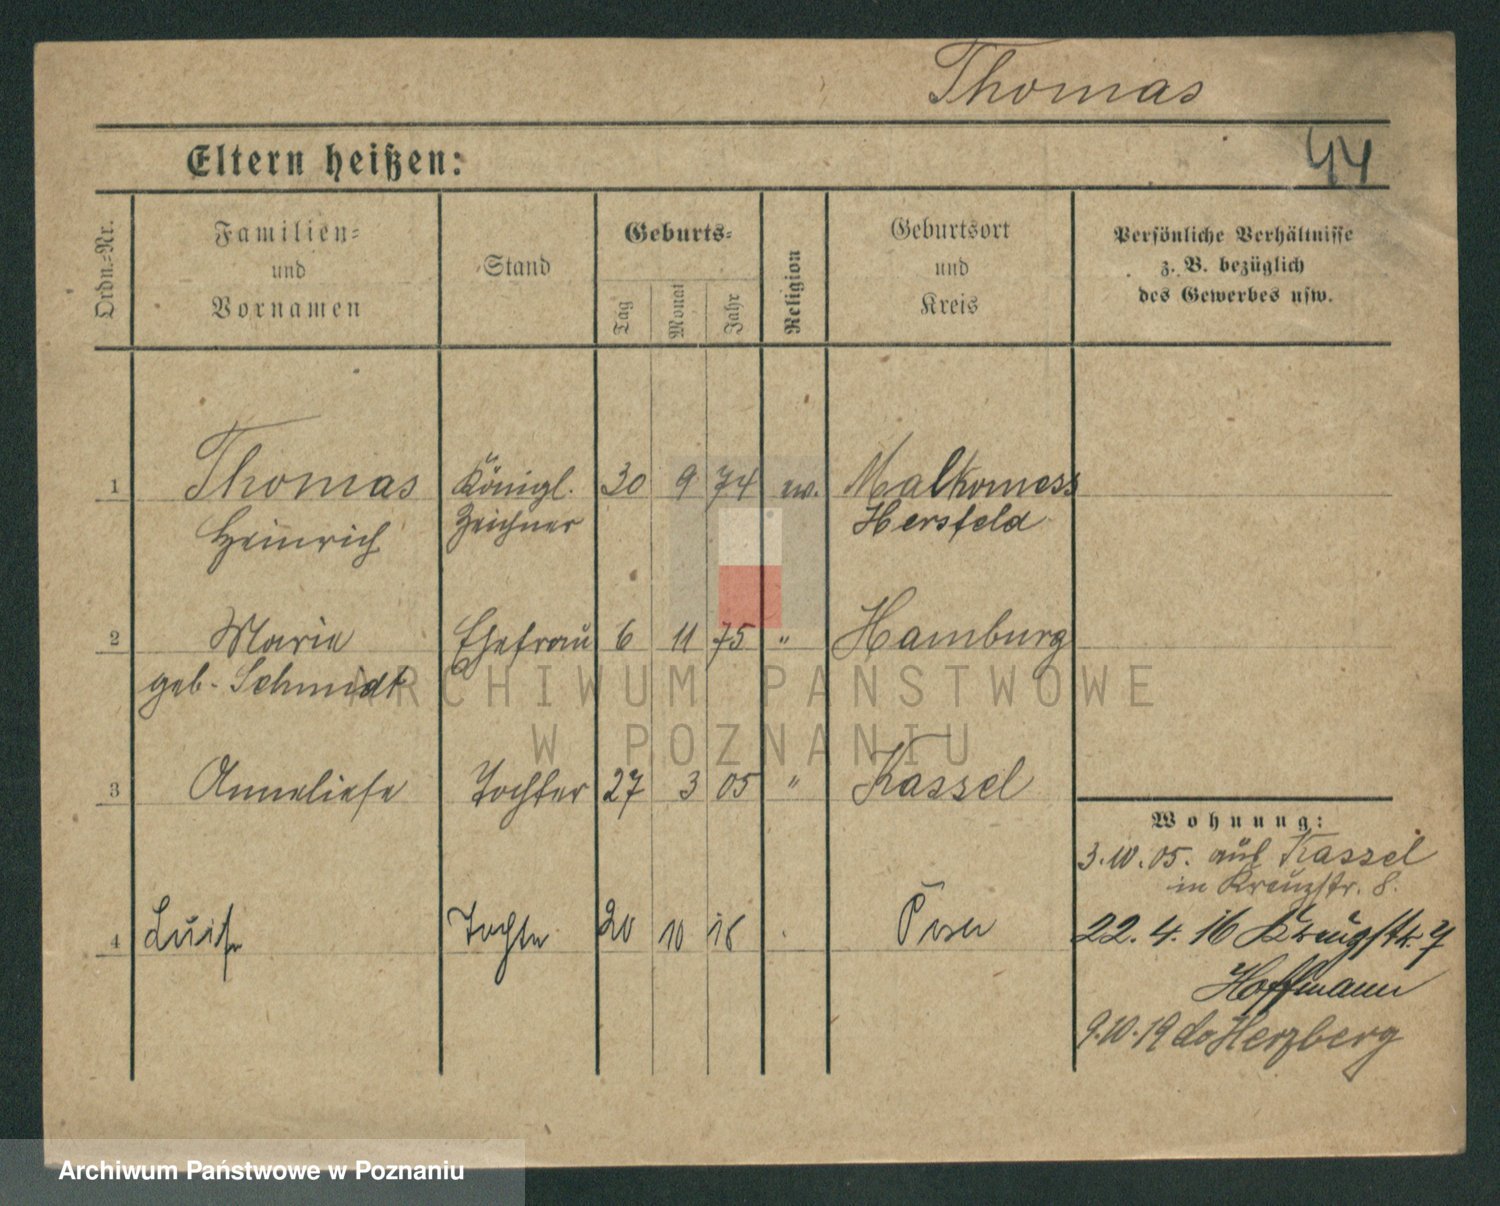 Thomas
44
Eltern heißen:
Ordn.-Nr.
Familien-
und
Vornamen
Stand
Geburts-
Tag
Monat
Jahr
Religion
Geburtsort
und
Kreis
Persönliche Verhältnisse
z. B. bezüglich
des Gewerbes usw.
1 Thomas Königl. 30 9 74 ev. Malkomess
Heinrich Zeichner Hersfeld
2 Marie Ehefrau 6 11 75 " Hamburg
geb. Schmidt
3 Anneliese Tochter 27 3 05 " Kassel
Wohnung:
3.10.05. aus Kassel
in Kreuzstr. 8.
4 Luise Tochter 20 10 18 Posen
22.4.16 Kreuzstr. 7
Hoffmann
9.10.19 do Herzberg
ARCHIWUM PAŃSTWOWE
W POZNANIU
Archiwum Państwowe w Poznaniu